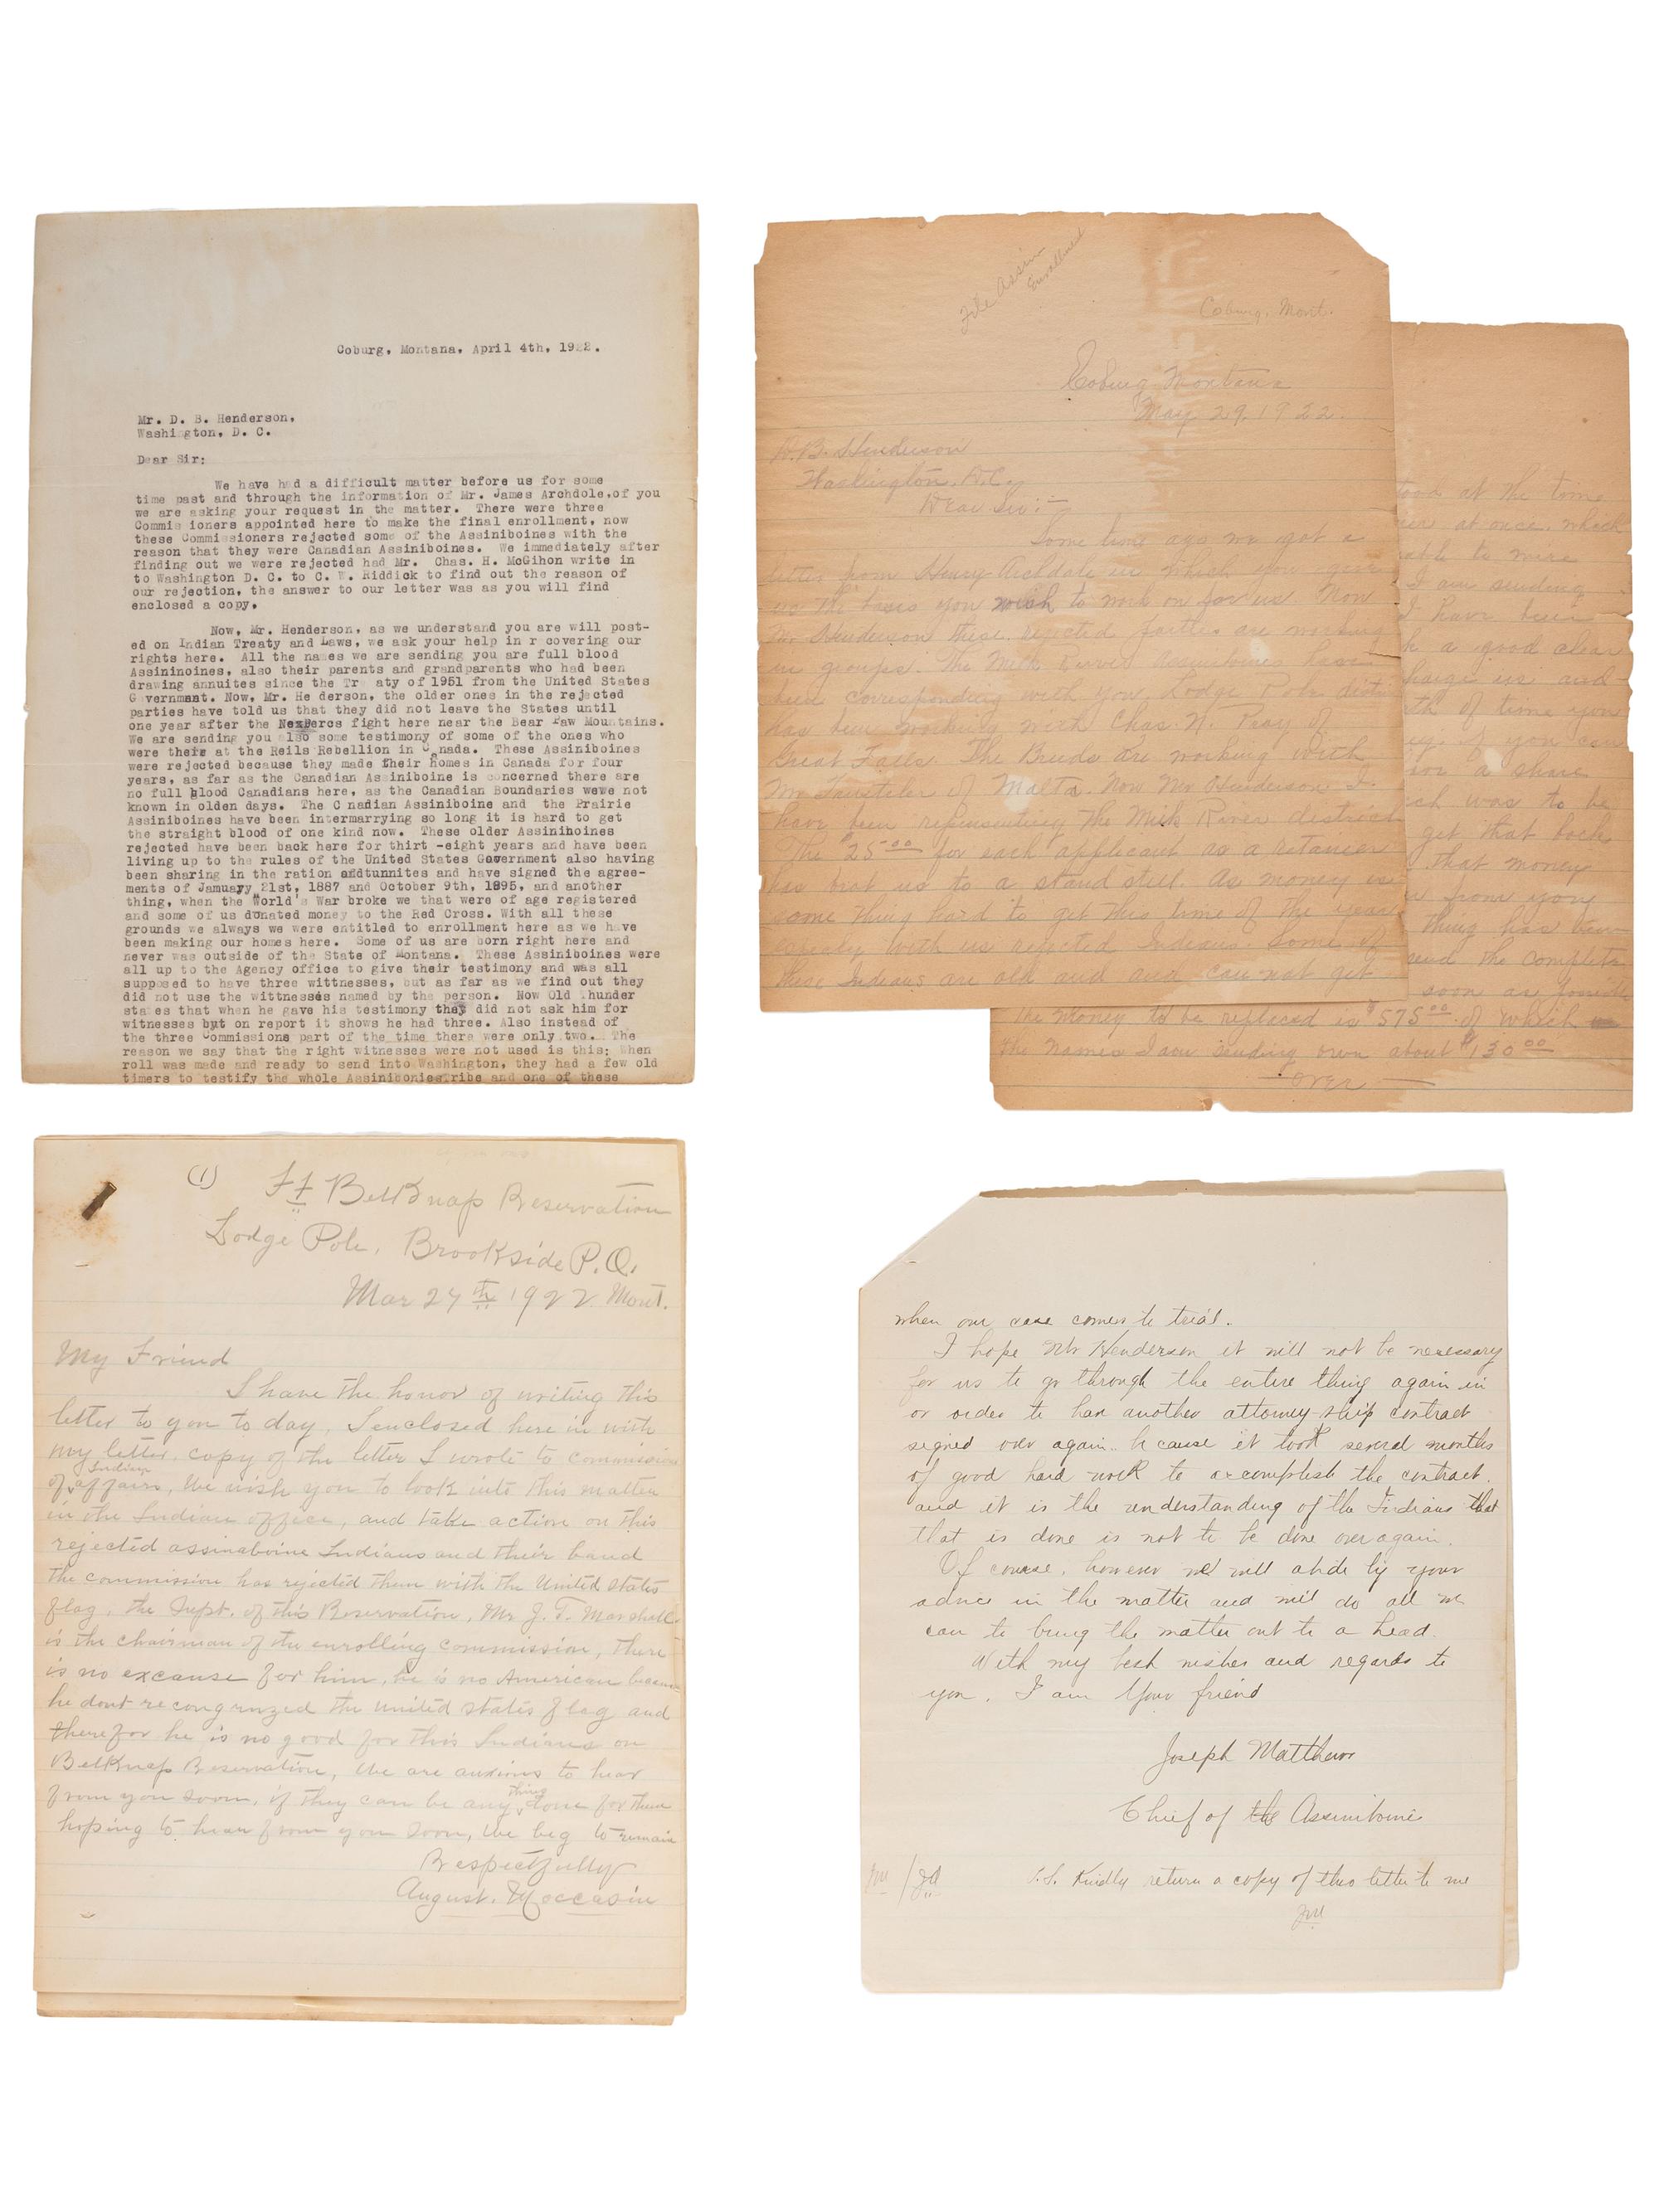 Coburg, Montana, April 4th, 1922.
Mr. D. B. Henderson,
Washington, D. C.
Dear Sir:
We have had a difficult matter before us for some
time past and through the information of Mr. James Archdole,of you
we are asking your request in the matter. There were three
Commis ioners appointed here to make the final enrollment, now
these Commissioners rejected some of the Assiniboines with the
reason that they were Canadian Assiniboines. We immediately after
finding out we were rejected had Mr. Chas. H. McGihon write in
to Washington D. C. to C. W. Riddick to find out the reason of
our rejection, the answer to our letter was as you will find
enclosed a copy.
Now, Mr. Henderson, as we understand you are will post-
ed on Indian Treaty and Laws, we ask your help in r covering our
rights here. All the names we are sending you are full blood
Assininoines, also their parents and grandparents who had been
drawing annuites since the Tr aty of 1951 from the United States
G vernmant. Now, Mr. He derson, the older ones in the rejected
parties have told us that they did not leave the States until
one year after the Nexpercs fight here near the Bear Paw Mountains.
We are sending you also some testimony of some of the ones who
were there at the Reils Rebellion in Canada. These Assiniboines
were rejected because they made their homes in Canada for four
years, as far as the Canadian Assiniboine is concerned there are
no full blood Canadians here, as the Canadian Boundaries wewe not
known in olden days. The C nadian Assiniboine and the Prairie
Assiniboines have been intermarrying so long it is hard to get
the straight blood of one kind now. These older Assinihoines
rejected have been back here for thirt -eight years and have been
living up to the rules of the United States Government also having
been sharing in the ration andtunnites and have signed the agree-
ments of Jamuayy 21st, 1887 and October 9th, 1895, and another
thing, when the World's War broke we that were of age registered
and some of us donated money to the Red Cross. With all these
grounds we always we were entitled to enrollment here as we have
been making our homes here. Some of us are born right here and
never was outside of the State of Montana. These Assiniboines were
all up to the Agency office to give their testimony and was all
supposed to have three wittnesses, but as far as we find out they
did not use the wittnesses named by the person. Now Old Thunder
states that when he gave his testimony they did not ask him for
witnesses byt on report it shows he had three. Also instead of
the three Commissions part of the time there were only two. The
reason we say that the right witnesses were not used is this; When
roll was made and ready to send into Washington, they had a few old
timers to testify the whole Assiniboniestribe and one of these
File Assin
Enrollment
Coburg, Mont.
Coburg Montana
May 29, 1922.
D.B. Henderson
Washington, D.C.
Dear Sir:-
Some time ago we got a
letter from Henry Archdale in which you gave
us the basis you wish to work on for us. Now
Mr Henderson these rejected parties are working
in groups. The Milk River Assiniboines have
been corresponding with you Lodge Pole distri
has been working with Chas. N. Pray of
Great Falls. The Breeds are working with
Mr of Malta. Now Mr Henderson I
have been representing the Milk River district
The $25.00 for each applicant as a retainer
has brot us to a stand still. As money is
some thing hard to get this time of the year
especily with us rejected Indians. Some of
these Indians are old and and can not get
tood at the time
at once. which
able to mire
I am sending
I have been
a good clear
charge us and
th of time you
if you can
for a share
ich was to be
get that back
that money
from you
thing has been
send the complete
soon as possible
The money to be replaced is $575.00 of which
the names I am sending own about $130.00
over
(1)
Ft BelKnap Reservation
Lodge Pole, Brookside P.O.
Mar 27th 1922 Mont.
My Friend
I have the honor of writing this
letter to you to day, I enclosed here in with
my letter. copy of the letter I wrote to commission
of Indian affairs, We wish you to look into this matter
in the Indian office, and take action on this
rejected assinaboine Indians and their band
the commission has rejected them with the United States
flag, the Supt. of this Reservation, Mr J. T. Marshall
is the chairman of the enrolling commission, there
is no excause for him, he is no American because
he dont recongnized the united states flag and
therefor he is no good for this Indians on
BelKnap Reservation, We are anxious to hear
from you soon, if they can be any thing done for them
hoping to hear from you soon, We beg to remain
Respectfully
August. Moccasin
when our case comes to trial.
I hope Mr Henderson it will not be necessary
for us to go through the entire thing again in
or order to have another attorney-ship contract
signed over again. because it took several months
of good hard work to accomplish the contract.
and it is the understanding of the Indians that
that is done is not to be done over again.
Of course, however we will abide by your
advice in the matter and will do all we
can to bring the matter out to a head.
With my best wishes and regards to
you, I am Your friend
Joseph Matthews
Chief of the Assiniboine
JM / JA
P.S. Kindly return a copy of this letter to me
JM